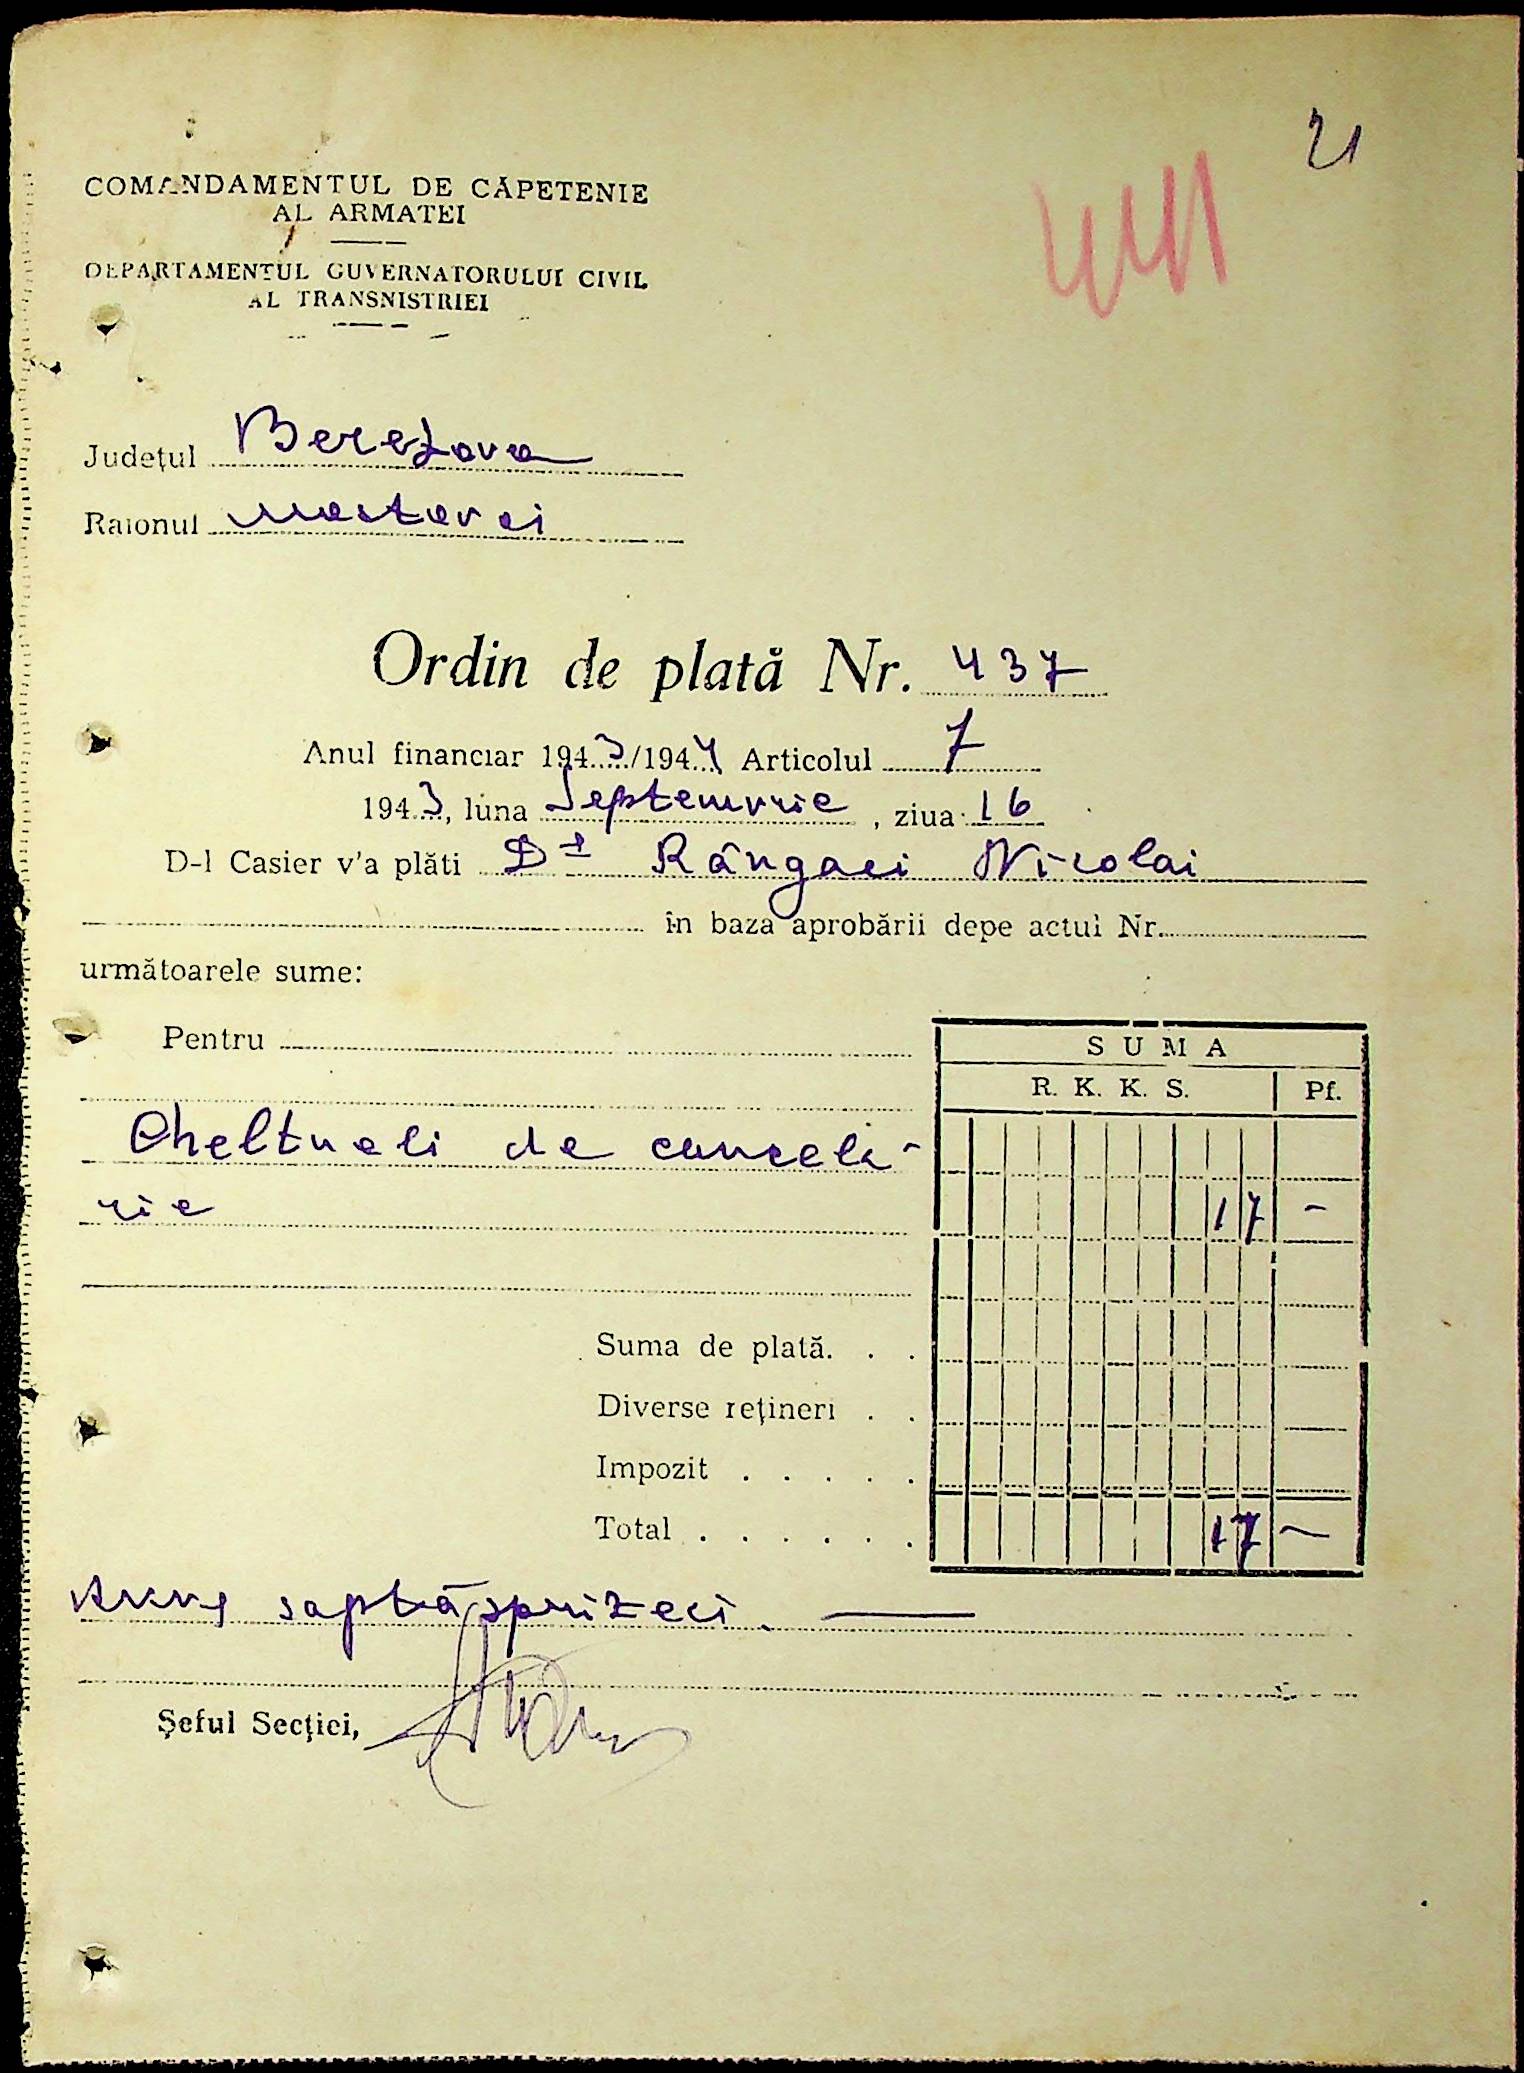 21
441
COMANDAMENTUL DE CĂPETENIE
AL ARMATEI
DEPARTAMENTUL GUVERNATORULUI CIVIL
AL TRANSNISTRIEI
Județul Berezova
Raionul Mostovoi
Ordin de plată Nr. 437
Anul financiar 1943/1944 Articolul 7
1943, luna Septemvrie, ziua 16
D-l Casier v'a plăti Dl Rângaci Nicolai
în baza aprobării depe actul Nr.
următoarele sume:
Pentru
SUMA
R. K. K. S. Pf.
Cheltueli de cancela-
rie 17 -
Suma de plată. . .
Diverse rețineri . .
Impozit . . . . .
Total . . . . . . 17 -
saptăsprizeci.
Șeful Secției,